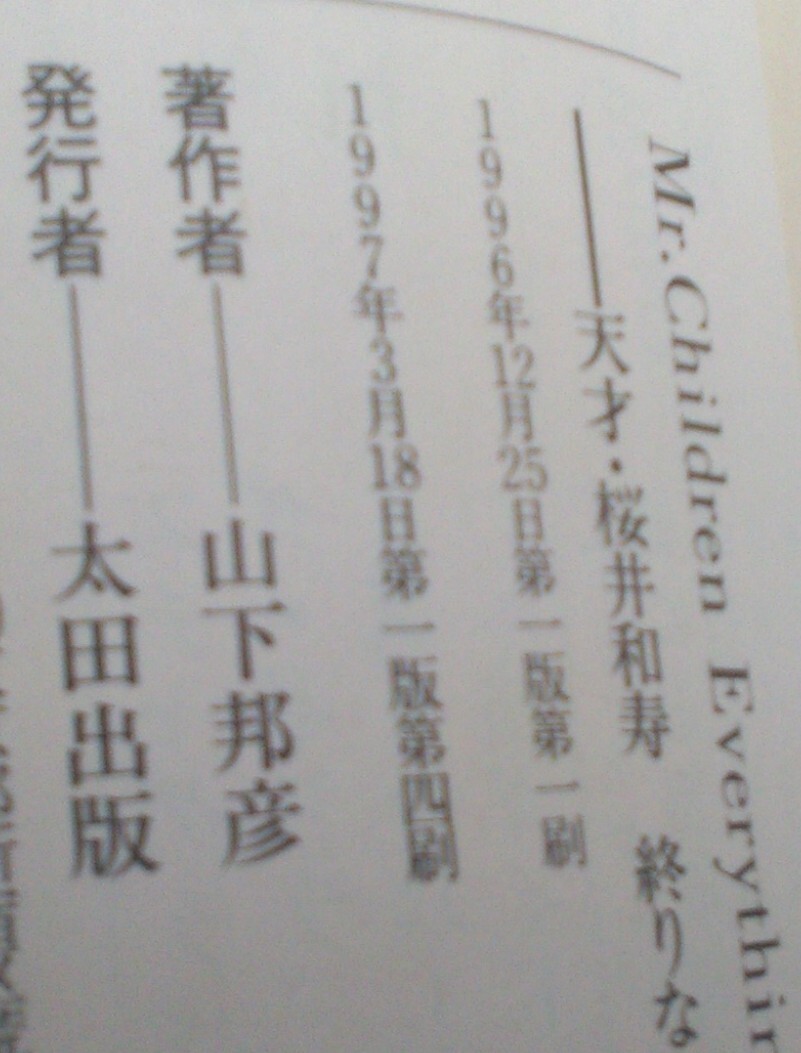 Mr. Children Everythin
――天才・桜井和寿 終りな
1996年12月25日第一版第一刷
1997年3月18日第一版第四刷
著作者――山下邦彦
発行者――太田出版